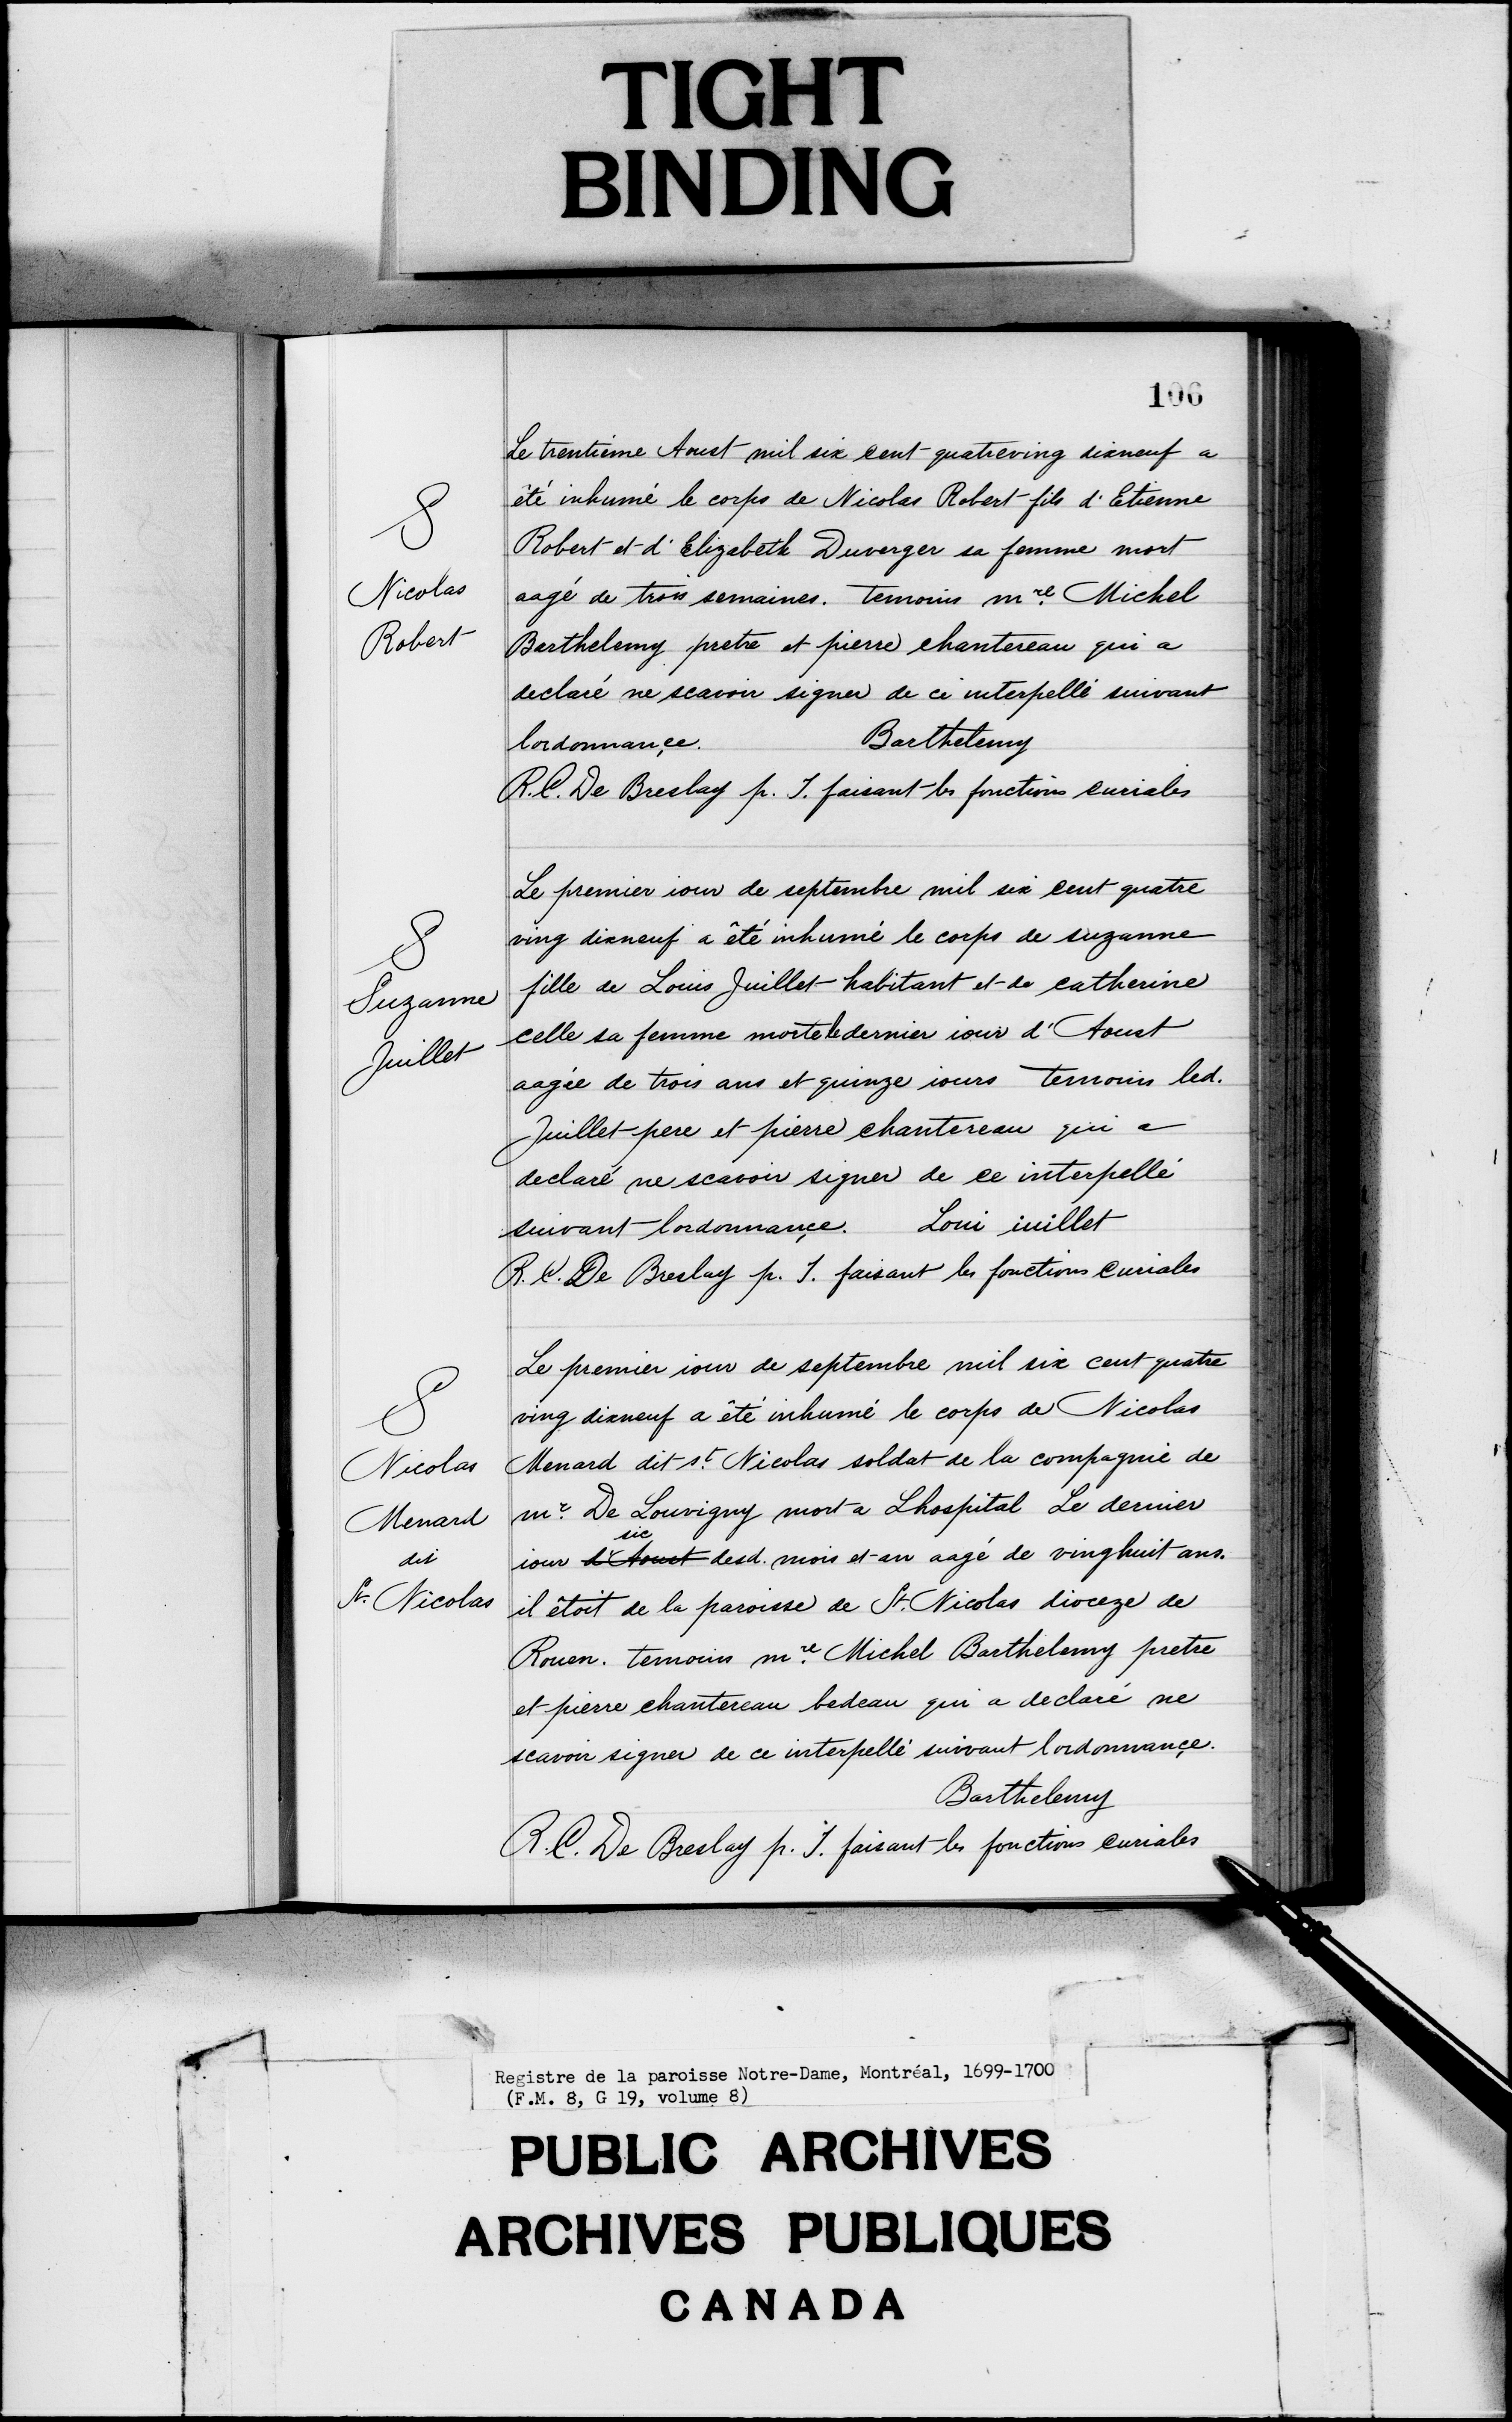 TIGHT
BINDING
106
Le trentième Aoust mil six cent quatreving dixneuf a
été inhumé le corps de Nicolas Robert fils d'Etienne
Robert et d'Elizabeth Duverger sa femme mort
aagé de trois semaines. temoins mre. Michel
Barthelemy pretre et pierre chantereau qui a
declaré ne scavoir signer de ce interpellé suivant
lordonnançe. Barthelemy
R.C. De Breslay p. J. faisant les fonctions curiales
S
Nicolas
Robert
Le premier iour de septembre mil six cent quatre
ving dixneuf a été inhumé le corps de suzanne
fille de Louis Juillet habitant et de catherine
celle sa femme morte le dernier iour d'Aoust
aagée de trois ans et quinze iours temoins led.
Juillet pere et pierre chantereau qui a
declaré ne scavoir signer de ce interpellé
suivant lordonnançe. Loui iuillet
R.C. De Breslay p. J. faisant les fonctions curiales
S
Suzanne
Juillet
Le premier iour de septembre mil six cent quatre
ving dixneuf a été inhumé le corps de Nicolas
Menard dit st. Nicolas soldat de la compagnie de
mr. De Louvigny mort a Lhospital Le dernier
sic
iour d'Aoust desd. mois et an aagé de vinghuit ans.
il étoit de la paroisse de St. Nicolas dioceze de
Rouen. temoins mre. Michel Barthelemy pretre
et pierre chantereau bedeau qui a declaré ne
scavoir signer de ce interpellé suivant lordonnançe.
Barthelemy
R.C. De Breslay p. J. faisant les fonctions curiales
S
Nicolas
Menard
dit
St. Nicolas
Registre de la paroisse Notre-Dame, Montréal, 1699-1700
(F.M. 8, G 19, volume 8)
PUBLIC ARCHIVES
ARCHIVES PUBLIQUES
CANADA